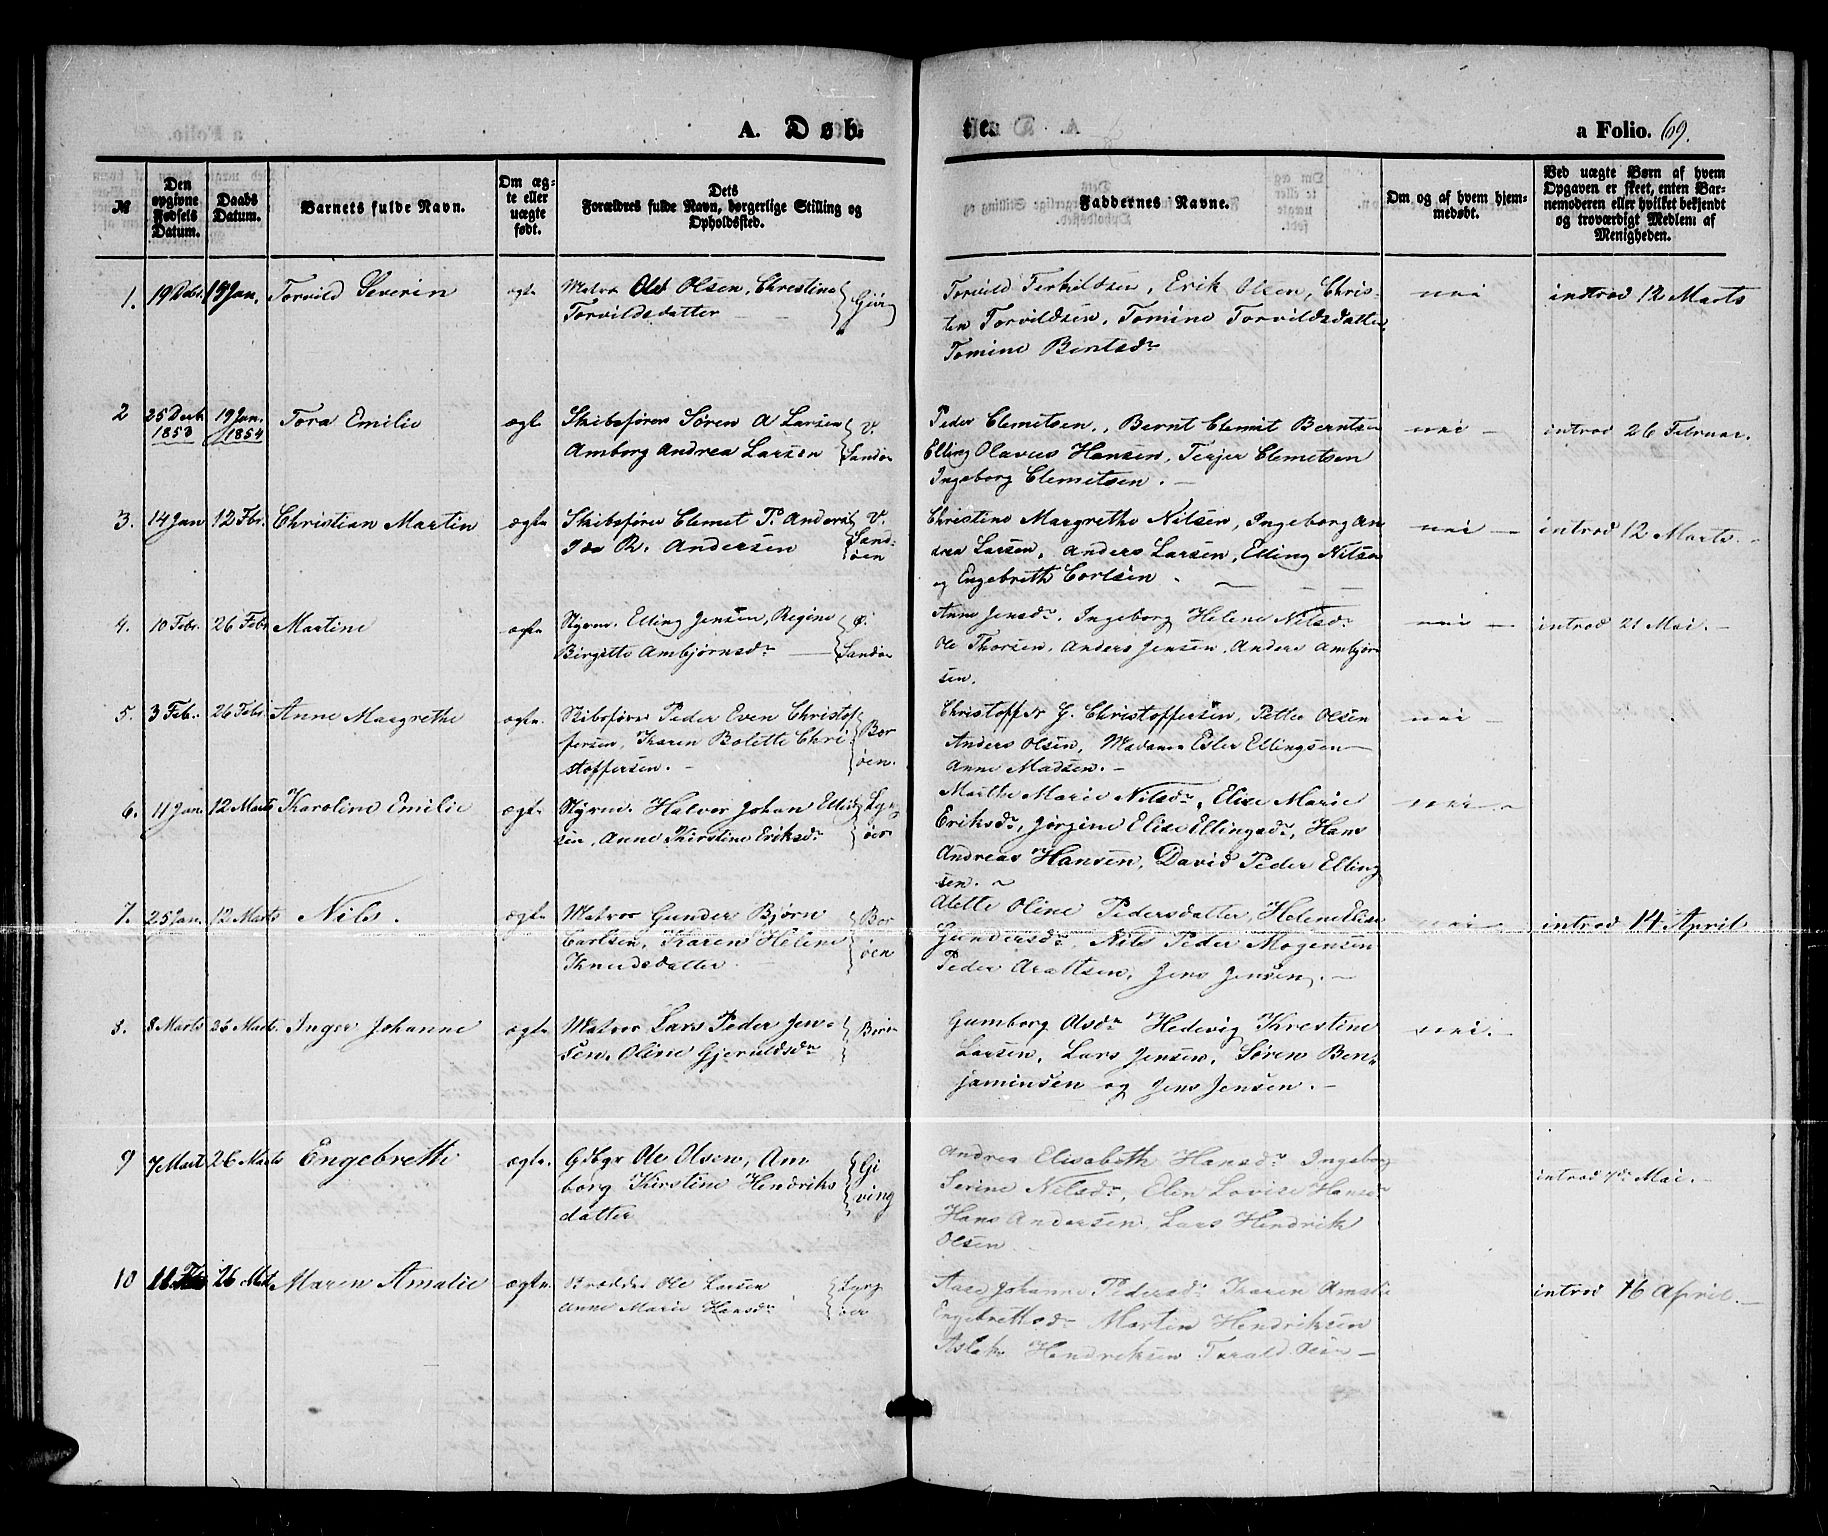 A. Døb-
te.
a Folio. 69.
№
Den opgivne Fødsels Datum.
Daabs Datum.
Barnets fulde Navn.
Om ægte eller uægte født.
Dets Forældres fulde Navn, borgerlige Stilling og Opholdssted.
Faddernes Navne.
Om og af hvem hjemmedøbt.
Ved uægte Børn af hvem Opgaven er skeet, enten Barnemoderen eller hvilket bekjendt og troværdigt Medlem af Menigheden.
1. 19 Debr. Jan. Torvild Severin ægte Matros Ole Olsen, Chrestine
Torvildsdatter
Torvild Terkildsen, Erik Olsen, Chris-
ten Torvildsen, Tomine Torvildsdatter
Tomine Berntsdr
nei introd 12 Marts
2 25 Decb. 1853 19 Jan. 1854 Tora Emilie ægte Skibsfører Søren A Larsen
Amborg Andrea Larsen
V. Sandø
Peder Clemetsen, Bernt Clemet Berntsen
Elling Olavus Hansen, Terjer Clemetsen
Ingeborg Clemetsen.
nei introd 26 Februar.
3. 14 Jan 12 Fbr. Christian Martin ægte Skibsfører Clemet P. Anders
R. Andersen
V. Sand-
øen
Christine Margrethe Nilsen, Ingeborg An
drea Larsen, Anders Larsen, Elling Nilsen
og Engebreth Carlsen.
nei introd 12 Marts.
4. 10 Febr. 26 Febr Martine ægte Styrm. Elling Jensen, Regine
Birgitte Ambjørnsdr
Ø. Sandø
Anne Jensdr. Ingeborg Helene Nilsdr
Ole Thorsen, Anders Jensen, Anders Ambjørn
sen.
nei introd 21 Mai.
5. 3 Feb. 26 Febr. Anne Margrethe ægte. Skibsfører Peder Even Christof
fersen, Karen Bolette Chri
stoffersen.
Bor
øen.
Christoffer G. Christoffersen, Petter Olsen
Anders Olsen, Madame Ester Ellingsen
Anne Madsen.
nei
6. 11 Jan. 12 Marts Karoline Emilie ægte Styrm. Halvor Johan Elling
sen, Anne Kirstine Eriksdr
Lyng
øer
Marthe Marie Nilsdr, Elise Marie
Eriksdr, Jørgine Elise Ellingsdr, Hans
Andreas Hansen, David Peder Elling
sen.
nei
7. 25 Jan. 12 Marts Nils. ægte Matros Gunder Bjørn
Carlsen, Karen Helene
Knudsdatter
Bor
øen
Alette Oline Pedersdatter, Helene Elise
Gundersdr, Nils Peder Mogensen
Peder Araltsen, Jens Jensen.
nei introd 14 April
8. 8 Marts 26 Marts. Inger Johanne ægte Matros Lars Peder Jen-
sen, Oline Gjeruldsdr
Borø
Gumborg Olsdr Hedevig Krestine
Larsen, Lars Jensen, Søren Ben-
jaminsen og Jens Jensen.
nei.
9 7 Mart 26 Marts Engebrett ægte. Gdbgr Ole Olsen, Am
borg Kirstine Hendriks
datter
Gi
ving
Andrea Elisabeth Hansdr Ingeborg
Serine Nilsdr, Elen Lovise Hansdr
Hans Andersen, Lars Hendrik
Olsen
introd 7de Mai.
10 11 Feb 26 Mts Maren Amalie ægte. Ole Larsen
Anne Marie Hansdr
Lyng
øer
Aase Johanne Pedersdr Karen Amalie
Engebrettsdr Martin Hendriksen
Aslak Hendriksen Tarald Olsen
introd 16 April.